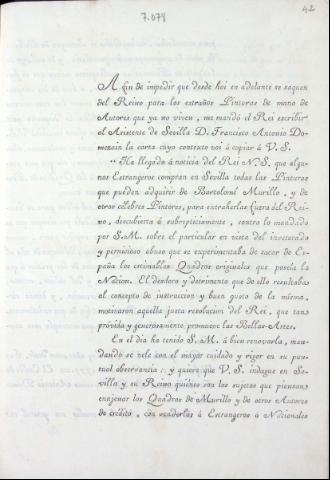 7.078
42
A fin de impedir que desde hoi en adelante se saquen
del Reino para los estraños Pinturas de mano de
Autores que ya no viven, me mandó el Rei escribir
al Asistente de Sevilla D. Francisco Antonio Do-
mezain la carta cuyo contexto voi á copiar á V. S.
"Ha llegado á noticia del Rei N. S., que algu-
nos Estrangeros compran en Sevilla todas las Pinturas
que pueden adquirir de Bartolomé Murillo, y de
otros célebres Pintores, para extraherlas fuera del Rei-
no, descubierta ó subrepticiamente, contra lo mandado
por S. M. sobre el particular en vista del inveterado
y pernicioso abuso que se experimentaba de sacar de Es-
paña los estimables Quadros originales que poseía la
Nacion. El desdoro y detrimento que de ello resultaba
al concepto de instruccion y buen gusto de la misma,
motivaron aquella justa resolucion del Rei, que tan
próvida y generosamente promueve las Bellas-Artes.
En el dia ha tenido S. M. á bien renovarla, man-
dando se vele con el mayor cuidado y rigor en su pun-
tual observancia; y quiere que V. S. indague en Se-
villa y su Reino quiénes son los sujetos que piensan
enajenar los Quadros de Murillo y de otros Autores
de crédito, con venderlos á Estrangeros ó Nacionales